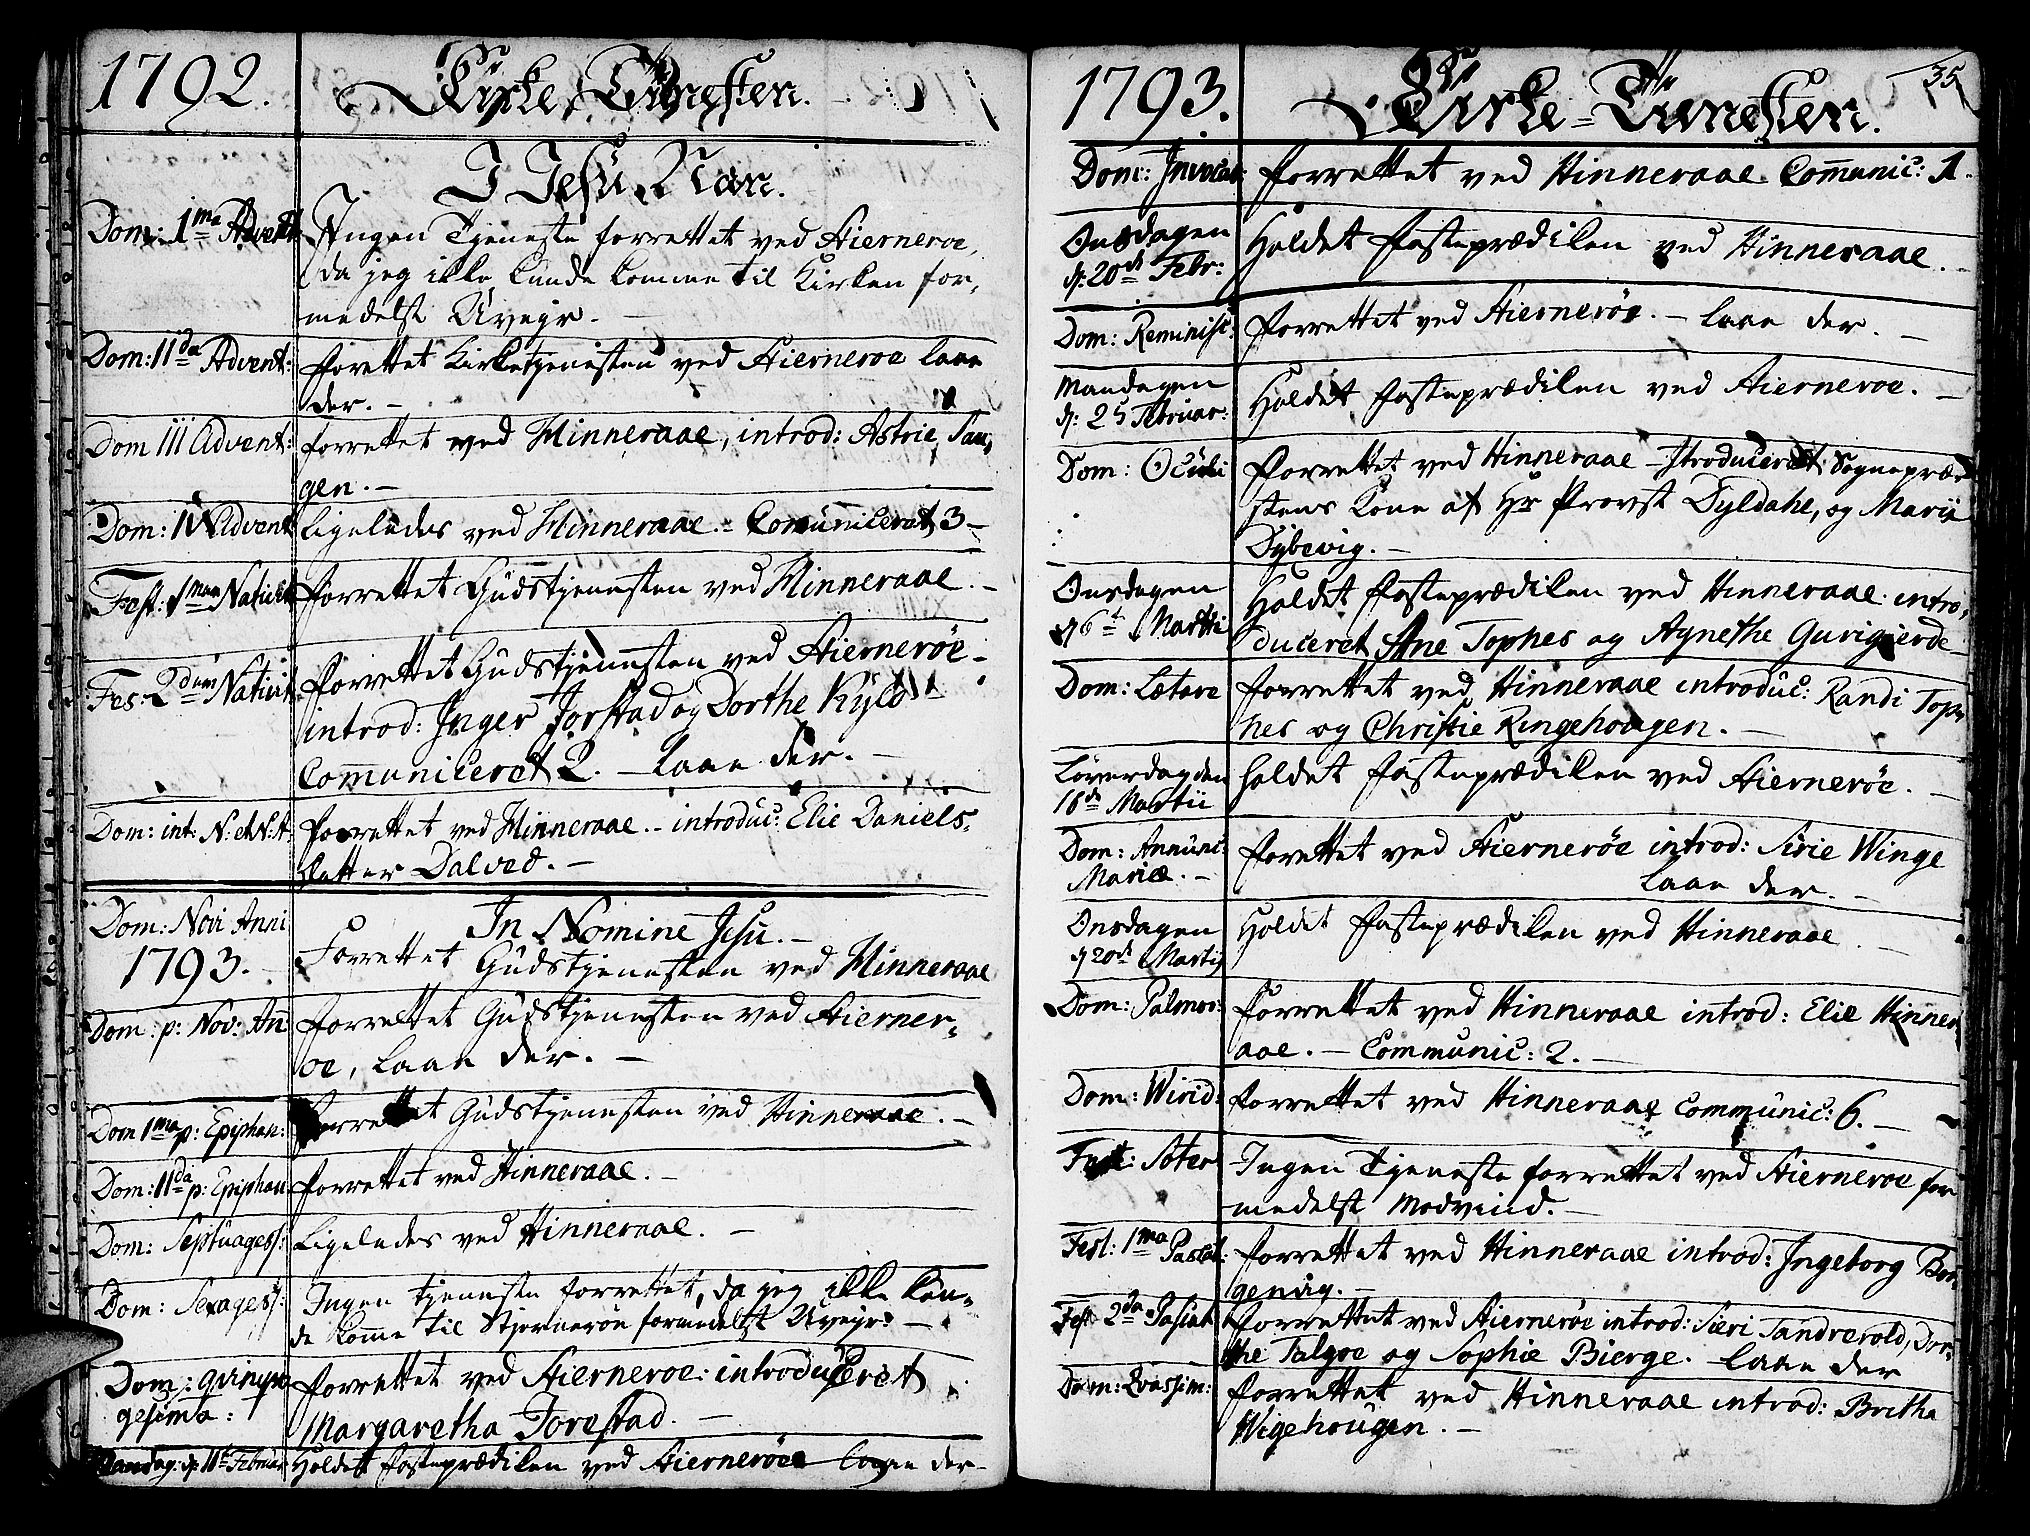 1792.
Kirke-Tienesten.
I Jesu Navn.
Dom: 1ma Advent:
Ingen Tjeneste forrettet ved Hierneroe,
da jeg ikke kunde komme til Kirken for-
medelst Uveyr. -
Dom: IIda Advent:
forettet Kirketjenesten ved Hierneroe laae
der. -
Dom III Advent:
forrettet ved Hinneraae, introd: Astrie Tan-
gen. -
Dom: IV Advent
Ligeledes ved Hinneraae. - Comuniceret 3 -
Fest: 1maa Nativit
forrettet Gudstjenesten ved Hinneraae. -
Fes: 2dum Nativit
forrettet Gudstjenesten ved Hierneröe -
introd: Inger Jorstad og Dorthe Kylo
Communiceret 2. - laae der. -
Dom: int: N: et N: A
forrettet ved Hinneraae. - introduc: Elie Daniels-
datter Dalved. -
Dom: Novi Anni
1793.
In Nomine Jesu. -
Forrettet Gudstjenesten ved Hinneraae
Dom: p: Nov: An
forrettet Gudstjenesten ved Hierner-
oe, laae der. -
Dom 1ma p: Epiphan:
forrettet Gudstjenesten ved Hinneraae. -
Dom: IIda p: Epiphan
forrettet ved Hinneraae. -
Dom: Septuages:
Ligeledes ved Hinneraae. -
Dom: Sexages:
Ingen tjeneste forrettet, da jeg ikke kun-
de komme til Stjerneröe formedelst Uveyr. -
Dom: qvinqva
gesima:
forrettet ved Hierneroe introduceret
Margaretha Torestad. -
Mandag: d. 11te Februar
Holdet fasteprædiken ved Hierneröe laae der -
1793.
Kirke-Tienesten.
35
Dom: Invocav:
forrettet ved Hinneraae Communic: 1.
Onsdagen
d: 20de Febr:
Holdet fasteprædiken ved Hinneraae. -
Dom: Reminisc:
forrettet ved Hierneröe. - laae der. -
Mandagen
d: 25 Februar:
Holdet fasteprædiken ved Hierneroe. -
Dom: Oculi
forrettet ved Hinneraae - Introduceret Sognepræ-
stens Kone af Hr Provst Dyldahl, og Marie
Dybevig. -
Onsdagen
d 6t Martii
Holdet fasteprædiken ved Hinneraae intro-
duceret Ane Tophes og Agnethe Gurigierde
Dom: Lætare
forrettet ved Hinneraae introduc: Randi Top-
hes og Christie Ringehougen. -
Löverdagen
16de Martii
holdet fasteprædiken ved Hierneröe. -
Dom: Annunc:
Mariæ. -
forettet ved Hierneröe introd: Sirie Winge
laae der. -
Onsdagen
d 20de Martij
Holdet fasteprædiken ved Hinneraae. -
Dom: Palmar:
forrettet ved Hinneraae introd: Elie Hinner
aae. - Communic: 2. -
Dom: Wirid:
forrettet ved Hinneraae Communic: 6. -
Fest: Soter
Ingen Tjeneste forrettet ved Hierneroe for
medelst Modvind. -
Fest: 1ma Pascat:
forrettet ved Hinneraae introd: Ingeborg Bor-
genvig. -
Fest 2da Paschat
forrettet ved Hiernerøe introd: Siri Tandrevold, Dor-
the Talgoe og Sophie Bierge. laae der
Dom: Qvasim:
forrettet ved Hinneraae introd: Britha
Wigehougen. -